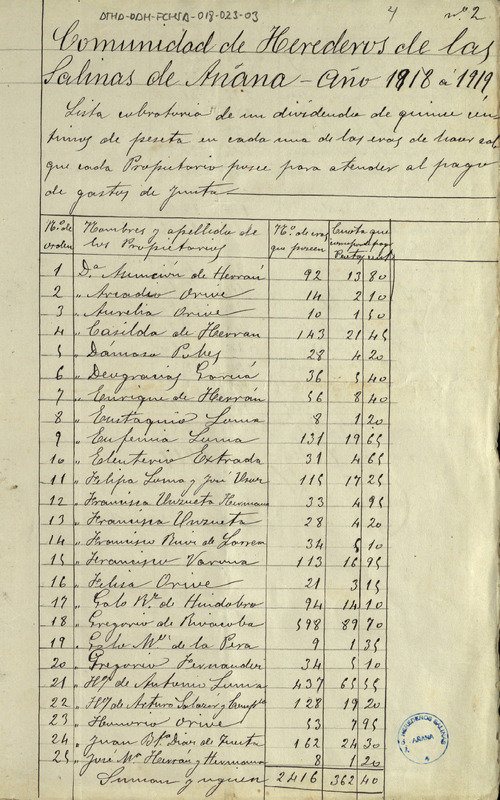 ATHA-DAH-FCHSA-018-023-03
4 nº 2
Comunidad de Herederos de las
Salinas de Añana - Año 1918 a 1919
Lista cobratoria de un dividendo de quince cén-
timos de peseta en cada una de las eras de hacer sal
que cada Propietario posee para atender al pago
de gastos de Junta
Nº de orden Nombres y apellido de los Propietarios Nº de eras que poseen Cuota que corresponde pagar Pesetas cents
1 D.ª Asuncion de Herrán 92 13 80
2 " Arcadio Orive 14 2 10
3 " Aurelia Orive 10 1 50
4 " Casilda de Herran 143 21 45
5 " Dámaso Pobes 28 4 20
6 " Deogracias García 36 5 40
7 " Enrique de Herrán 56 8 40
8 " Eustaquio Loma 8 1 20
9 " Eufemia Loma 131 19 65
10 " Eleuterio Extrada 31 4 65
11 " Felipa Loma y José 115 17 25
12 " Francisca Unzueta Hermano 33 4 95
13 " Francisca Unzueta 28 4 20
14 " Francisco Ruiz de 34 5 10
15 " Francisco Varona 113 16 95
16 " Felisa Orive 21 3 15
17 " Galo Rz. de Huidobro 94 14 10
18 " Gregorio de Rivacoba 598 89 70
19 " Mª de la Pera 9 1 35
20 " Gregorio Fernandez 34 5 10
21 " Hs. de Antonio Loma 437 65 55
22 " Hs. de Arturo Salazar y 128 19 20
23 " Honorio Orive 53 7 95
24 " Juan Bta. Diaz de 162 24 30
25 " José Mª Herrán y Hermana 8 1 20
Suman y siguen 2416 362 40
HEREDEROS SALINAS
AÑANA